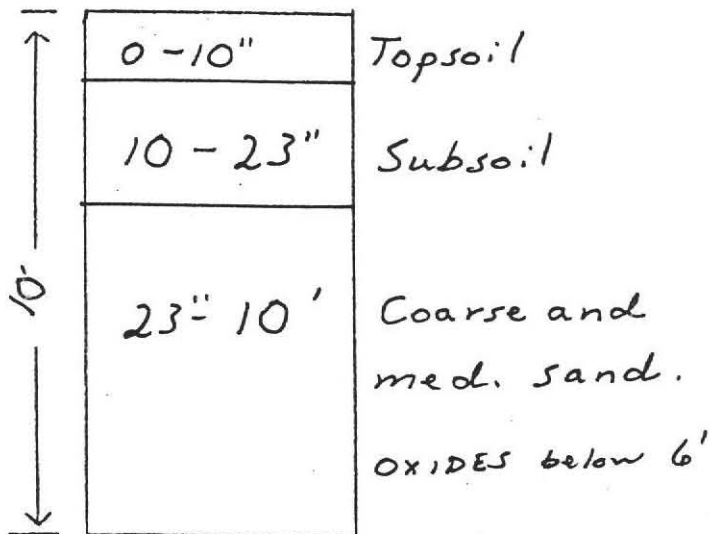 0-10" Topsoil
10-23" Subsoil
10'
23"-10' Coarse and
med. sand.
OXIDES below 6'